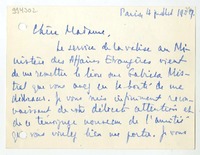 994302
Paris 4 juillet 1959.
Chère Madame,
Le service de la valise au Mi-
nistère des Affaires Etrangères vient
de me remettre le livre sur Gabriela Mis-
tral que vous avez eu la bonté de me
dédicacer. Je vous suis infiniment recon-
naissant de votre délicate attention et
de ce témoignage nouveau de l'amitié
que vous voulez bien me porter. Je vous